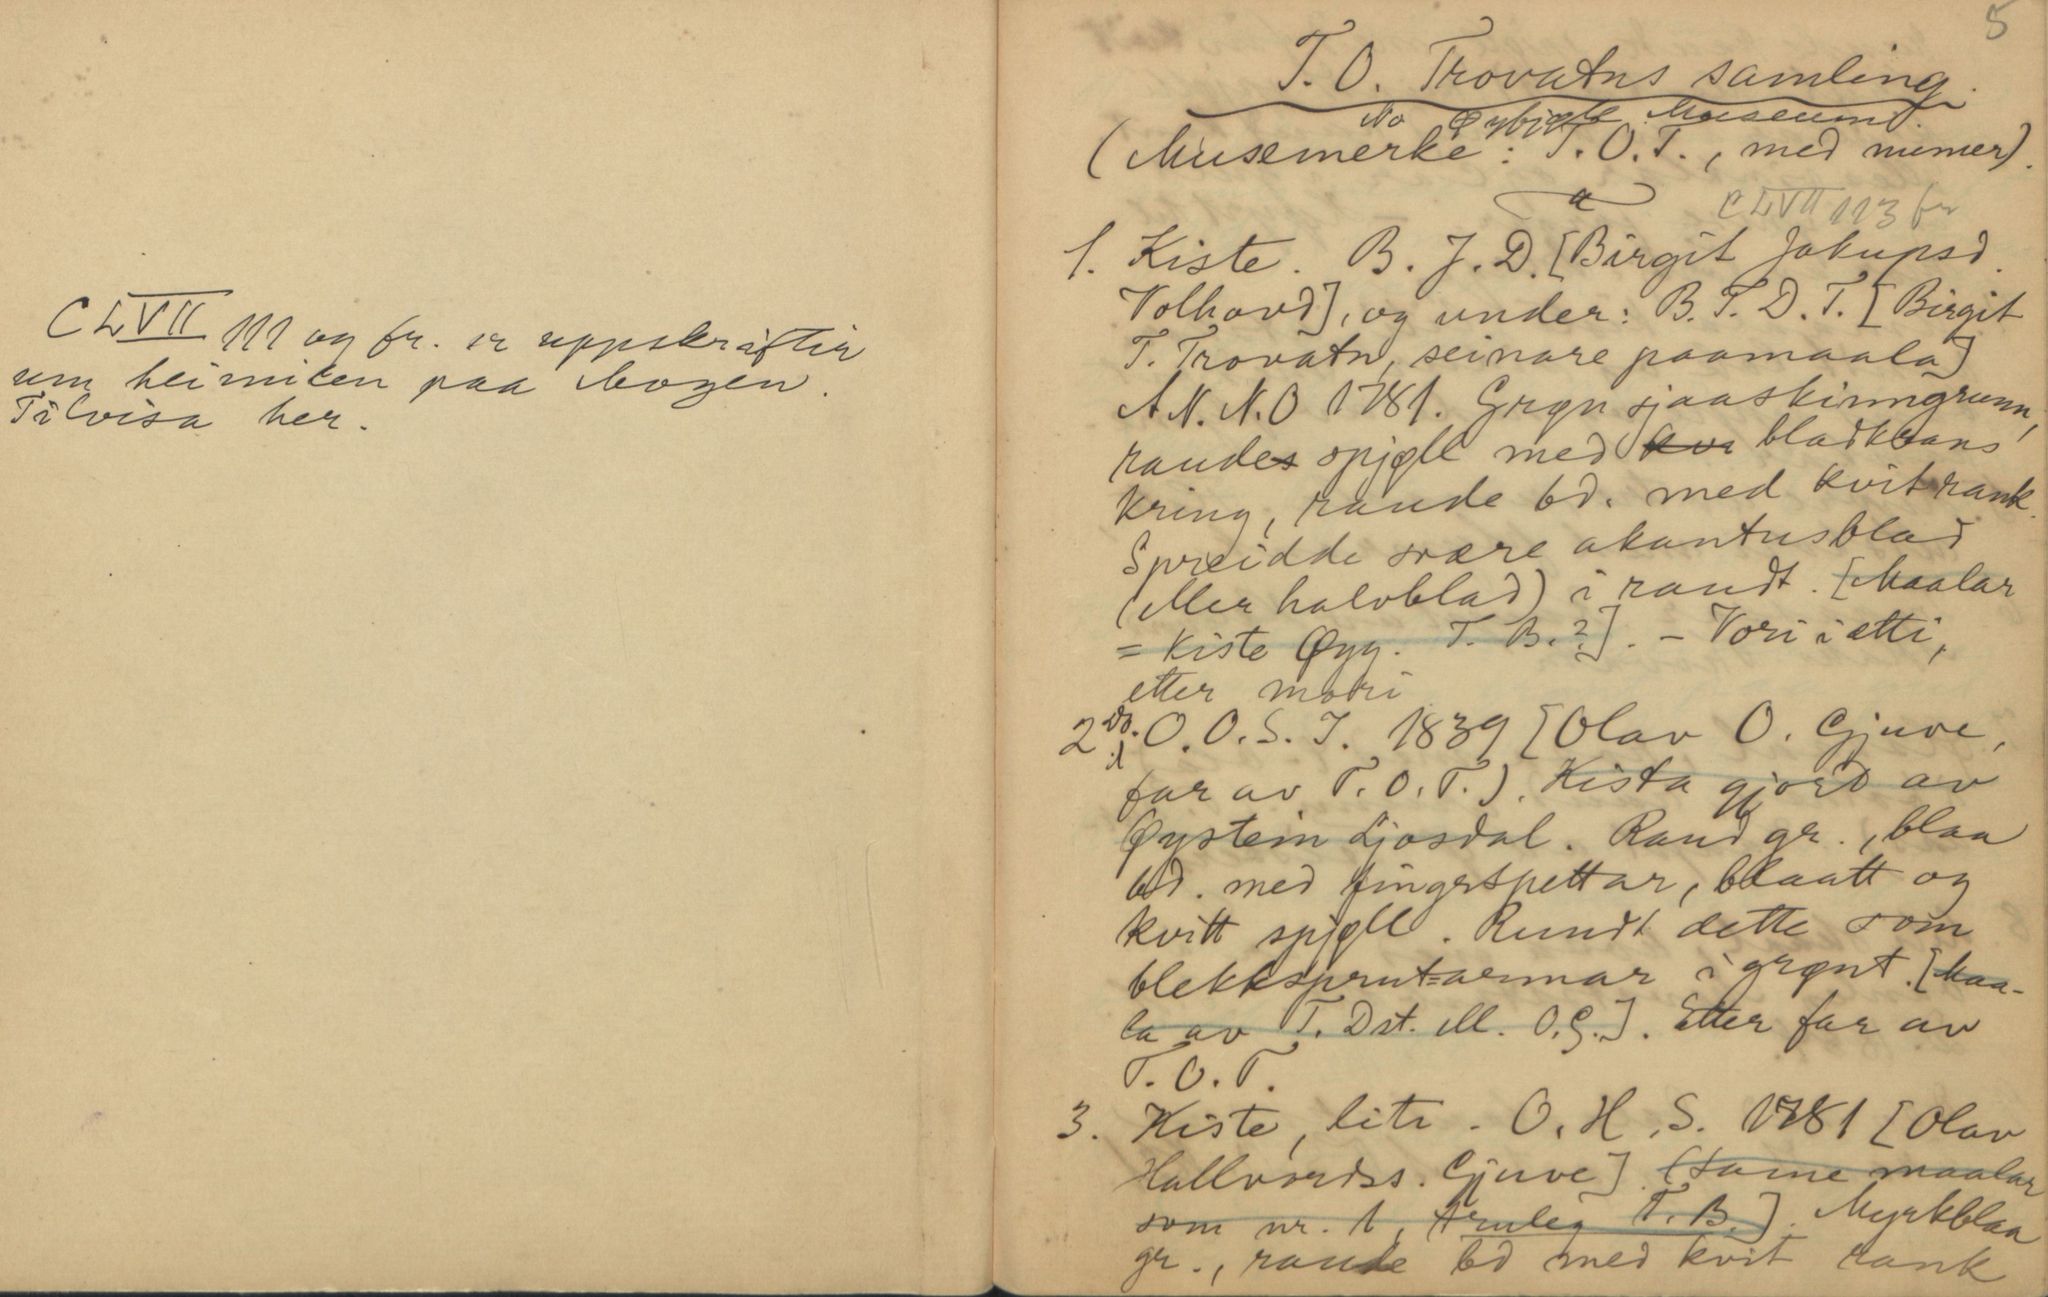 CLVII 111 og fr. er uppskrifter
um heimilen paa Mogen.
Tilvisa her.
5
T. O. Trovatns samling.
No Øybjøll Museum.
(Musemerke: T.O.T., med numer).
a
CLVII 113 fr
1. Kiste. B. J. D. [Birgit Jakupsd.
Volhovd], og under: B. T. D. T. [Birgit
T. Trovatn, seinare paamaala]
A.N.N.O 1781. Grøn sjaaskinngrunn,
raude spjøll med bladkrans
kring, raude bd. med kvit rank.
Spreidde svære akantusblad
(eller halvblad) i raudt. [Maalar
= Kiste Øyg. T. B.?]. - Vori i ætti,
etter mori
2 Do. 1 O. O. S. J. 1839 [Olav O. Gjuve,
far av T. O. T.). Kista gjord av
Øystein Ljosdal. Raud gr., blaa
bd. med fingrspettar, blaatt og
kvitt spjøll. Rundt dette som
blekksprut=armar i grønt. [Maa-
la av T. Dst. M. O.G.]. Etter far av
T. O. T.
3. Kiste, liti. O. H. S. 1781 [Olav
Hallvordss. Gjuve] (same maalar
som nr. 1, truleg T. B.]. Myrkblaa
gr., raude bd med kvit rank